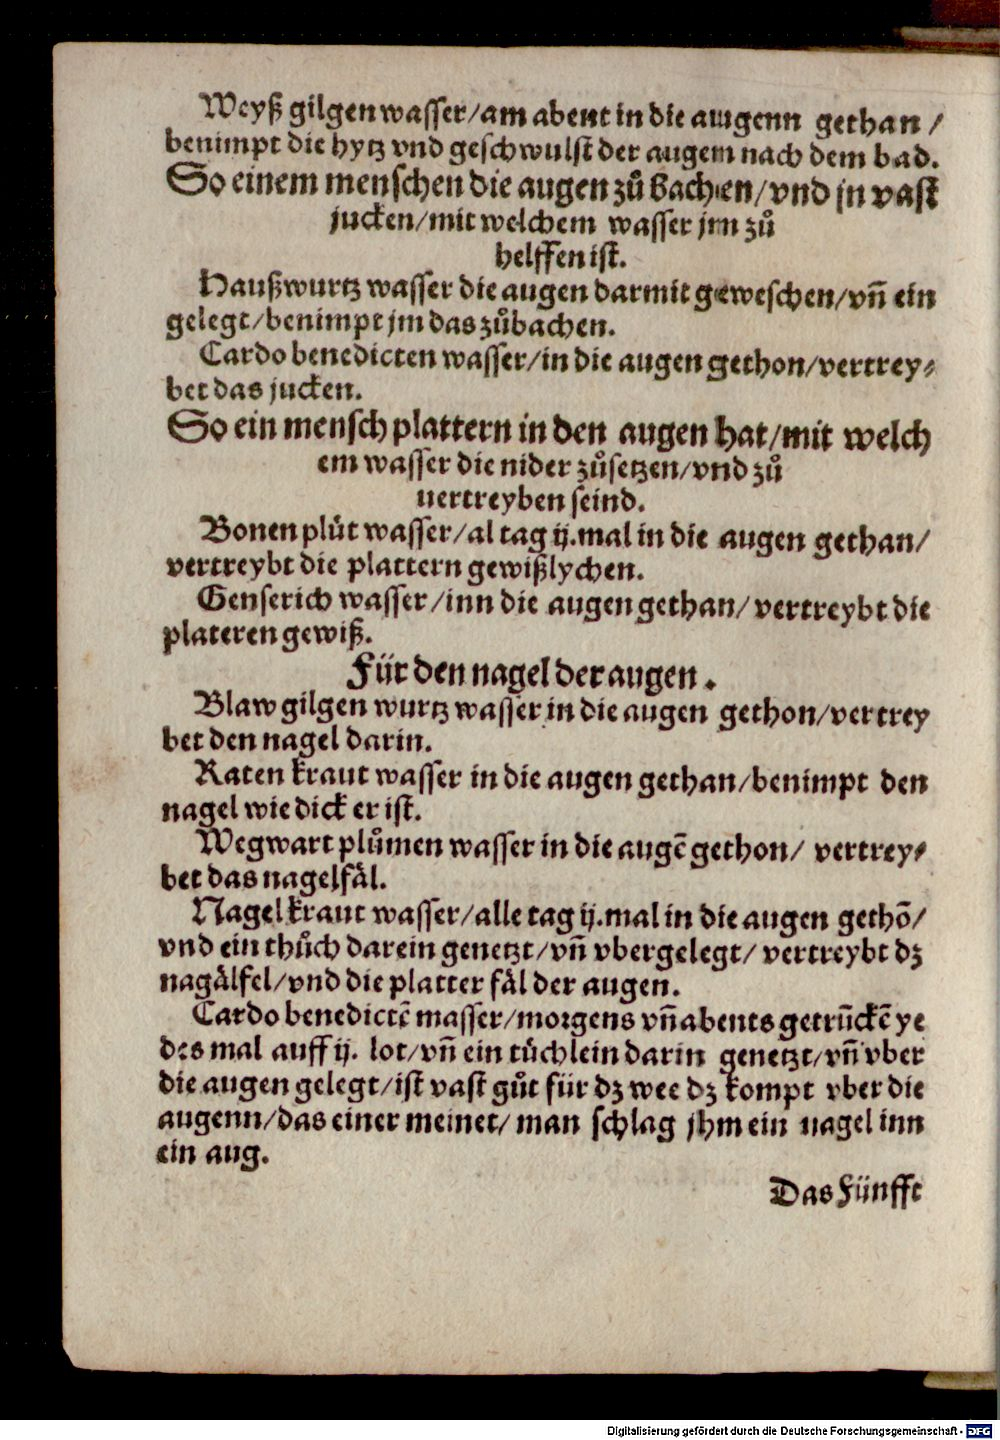 Weyß gilgen wasser/am abent in die augenn gethan/
benimpt die hytz vnd geschwulst der augem nach dem bad.
So einem menschen die augen zů bachen/vnd jn vast
jucken/mit welchem wasser jm zů
helffen ist.
Haußwurtz wasser die augen darmit geweschen/vñ ein
gelegt/benimpt jm das zůbachen.
Cardo benedicten wasser/in die augen gethon/vertrey⸗
bet das jucken.
So ein mensch plattern in den augen hat/mit welch
em wasser die nider zůsetzen/vnd zů
uertreyben seind.
Bonen plůt wasser/al tag ij.mal in die augen gethan/
vertreybt die plattern gewißlychen.
Genserich wasser/inn die augen gethan/vertreybt die
plateren gewiß.
Für den nagel der augen.
Blaw gilgen wurtz wasser in die augen gethon/vertrey
bet den nagel darin.
Raten kraut wasser in die augen gethan/benimpt den
nagel wie dick er ist.
Wegwart plůmen wasser in die augē gethon/ vertrey⸗
bet das nagelfäl.
Nagel kraut wasser/alle tag ij.mal in die augen gethō/
vnd ein thůch darein genetzt/vñ vbergelegt/ vertreybt dz
nagälfel/vnd die platter fäl der augen.
Cardo benedictē masser/morgens vñ abents getrūckē ye
des mal auff ij. lot/vñ ein tůchlein darin genetzt/vñ vber
die augen gelegt/ist vast gůt für dz wee dz kompt vber die
augenn/das einer meinet/ man schlag jhm ein nagel inn
ein aug.
Das Fünfft
Digitalisierung gefördert durch die Deutsche Forschungsgemeinschaft - DFG